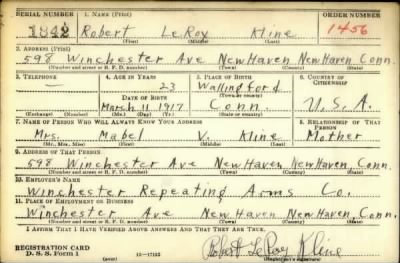 SERIAL NUMBER 1. NAME (Print) ORDER NUMBER
1842 Robert LeRoy Kline 1456
(First) (Middle) (Last)
2. ADDRESS (Print)
598 Winchester Ave New Haven New Haven Conn.
(Number and street or R. F. D. number) (Town) (County) (State)
3. TELEPHONE 4. AGE IN YEARS 5. PLACE OF BIRTH 6. COUNTRY OF CITIZENSHIP
— 23 Wallingford
DATE OF BIRTH (Town or county)
March 11 1917 Conn. U.S.A.
(Exchange) (Number) (Mo.) (Day) (Yr.) (State or country)
7. NAME OF PERSON WHO WILL ALWAYS KNOW YOUR ADDRESS 8. RELATIONSHIP OF THAT PERSON
Mrs. Mabel V. Kline Mother
(Mr., Mrs., Miss) (First) (Middle) (Last)
9. ADDRESS OF THAT PERSON
598 Winchester Ave New Haven New Haven Conn.
(Number and street or R. F. D. number) (Town) (County) (State)
10. EMPLOYER'S NAME
Winchester Repeating Arms Co.
11. PLACE OF EMPLOYMENT OR BUSINESS
Winchester Ave New Haven New Haven, Conn.
(Number and street or R. F. D. number) (Town) (County) (State)
I AFFIRM THAT I HAVE VERIFIED ABOVE ANSWERS AND THAT THEY ARE TRUE.
REGISTRATION CARD
D. S. S. Form 1 Robert LeRoy Kline